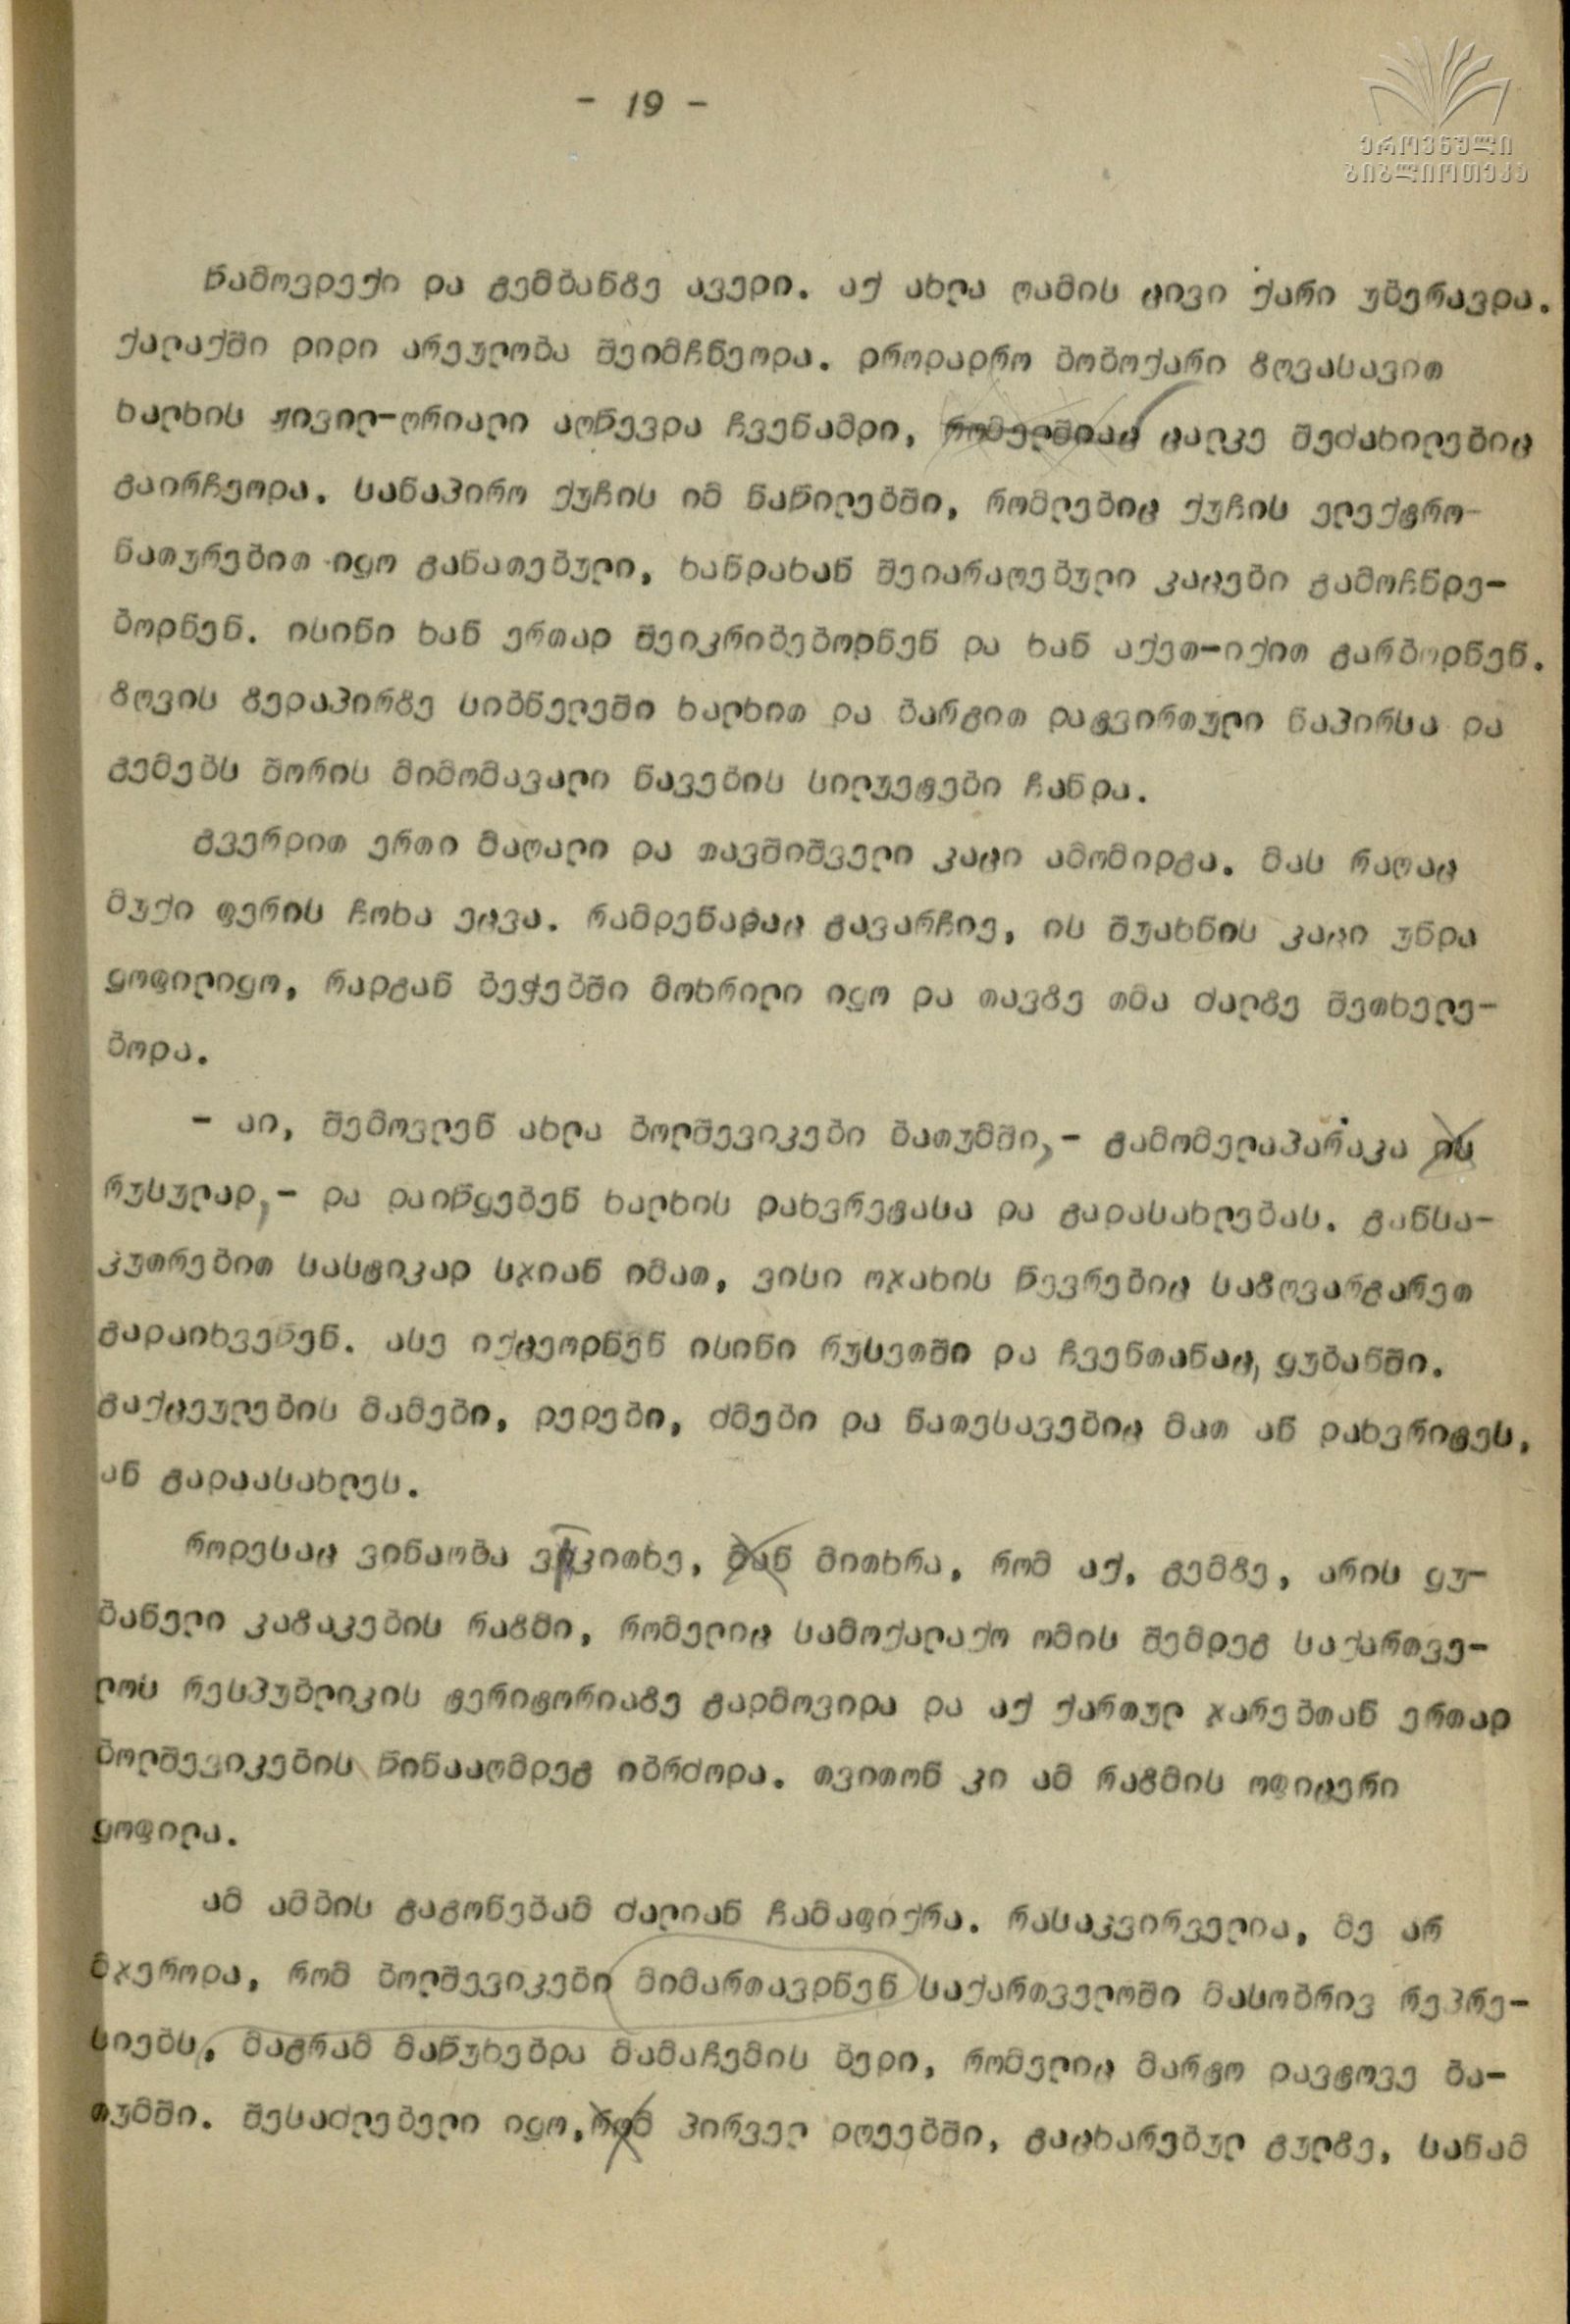 - 19 -
ეროვნული
ბიბლიოთეკა
წამოვდექი და გემბანზე ავედი. აქ ახლა ღამის ცივი ქარი უბერავდა.
ქალაქში დიდი არეულობა შეიმჩნეოდა. დროდადრო ბობოქარი ზღვასავით
ხალხის ჟივილ-ღრიალი აღწევდა ჩვენამდი, რომელშიაც ცალკე შეძახილებიც
გაირჩეოდა. სანაპირო ქუჩის იმ ნაწილებში, რომლებიც ქუჩის ელექტრო-
ნათურებით იყო განათებული, ხანდახან შეიარაღებული კაცები გამოჩნდე-
ბოდნენ. ისინი ხან ერთად შეიკრიბებოდნენ და ხან აქეთ-იქით გარბოდნენ.
ზღვის ზედაპირზე სიბნელეში ხალხით და ბარგით დატვირთული ნაპირსა და
გემებს შორის მიმომავალი ნავების სილუეტები ჩანდა.
გვერდით ერთი მაღალი და თავშიშველი კაცი ამომიდგა. მას რაღაც
მუქი ფერის ჩოხა ეცვა. რამდენადაც გავარჩიე, ის შუახნის კაცი უნდა
ყოფილიყო, რადგან ბეჭებში მოხრილი იყო და თავზე თმა ძალზე შეთხელე-
ბოდა.
- აი, შემოვლენ ახლა ბოლშევიკები ბათუმში,- გამომელაპარაკა ის
რუსულად,- და დაიწყებენ ხალხის დახვრეტასა და გადასახლებას. განსა-
კუთრებით სასტიკად სჯიან იმათ, ვისი ოჯახის წევრებიც საზღვარგარეთ
გადაიხვეწენ. ასე იქცეოდნენ ისინი რუსეთში და ჩვენთანაც, ყუბანში.
გაქცეულების მამები, დედები, ძმები და ნათესავებიც მათ ან დახვრიტეს,
ან გადაასახლეს.
როდესაც ვინაობა ვკითხე, მან მითხრა, რომ აქ, გემზე, არის ყუ-
ბანელი კაზაკების რაზმი, რომელიც სამოქალაქო ომის შემდეგ საქართვე-
ლოს რესპუბლიკის ტერიტორიაზე გადმოვიდა და აქ ქართულ ჯარებთან ერთად
ბოლშევიკების წინააღმდეგ იბრძოდა. თვითონ კი ამ რაზმის ოფიცერი
ყოფილა.
ამ ამბის გაგონებამ ძალიან ჩამაფიქრა. რასაკვირველია, მე არ
მჯეროდა, რომ ბოლშევიკები მიმართავდნენ საქართველოში მასობრივ რეპრე-
სიებს, მაგრამ მაწუხებდა მამაჩემის ბედი, რომელიც მარტო დავტოვე ბა-
თუმში. შესაძლებელი იყო, რომ პირველ დღეებში, გაცხარებულ გულზე, სანამ